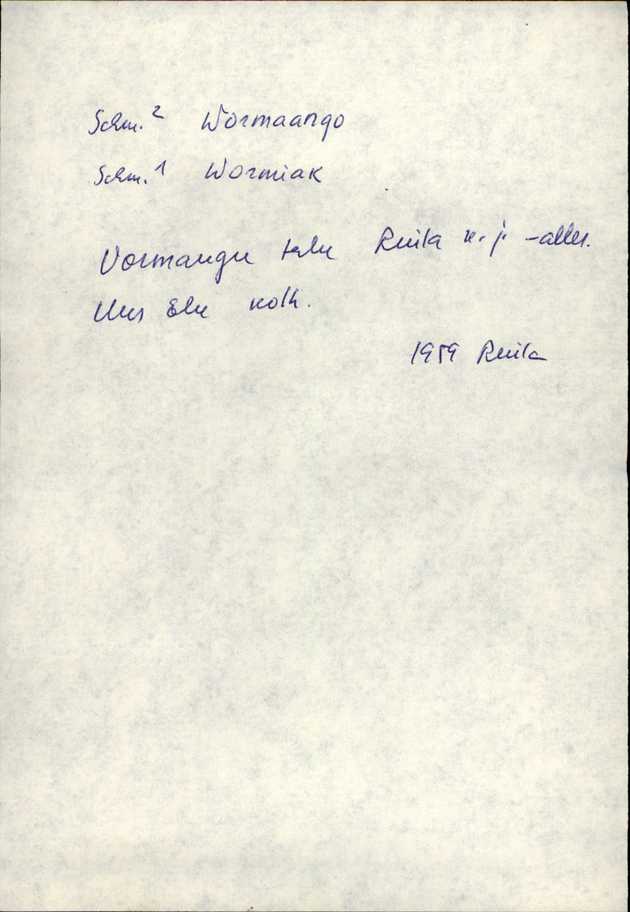 Schm.² Wormaango
Schm.¹ Wormiak
Vormangu talu Ruila v. j. -alles.
Uus Elu kolh.
1959 Ruila